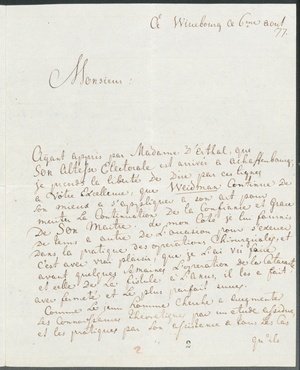 Ce Wirzbourg ce 6me Aout
77.
Monsieur:
Ayant appris par Madame D'Erthal, que
Son Altesse Electorale est arrivée a Achaffenbourg
je prends la liberté de Dire par ces lignes
a Votre Excellence, que Weidman continue de
son mieux a s'appliquer a son art pour
meriter La Continuation de la Confiance et Grace
de Son Maitre. de mon Coté je lui fournis
de tems a autre de l'occasion pour s'exercer
dans la pratique des operations Chirurgicales, et
c'est avec vrai plaisir, que je L'ai vû faire
avant quelques semaines L'operation de la Cataracte
et celle de La fistule a L'anus, il les a fait
avec fermeté et le plus parfait succes.
Comme Le jeune homme cherche a augmenter
ses Connoissances theoretique par un etude assidue
et les pratiques par son assistance a tous les cas
qu'ils
2